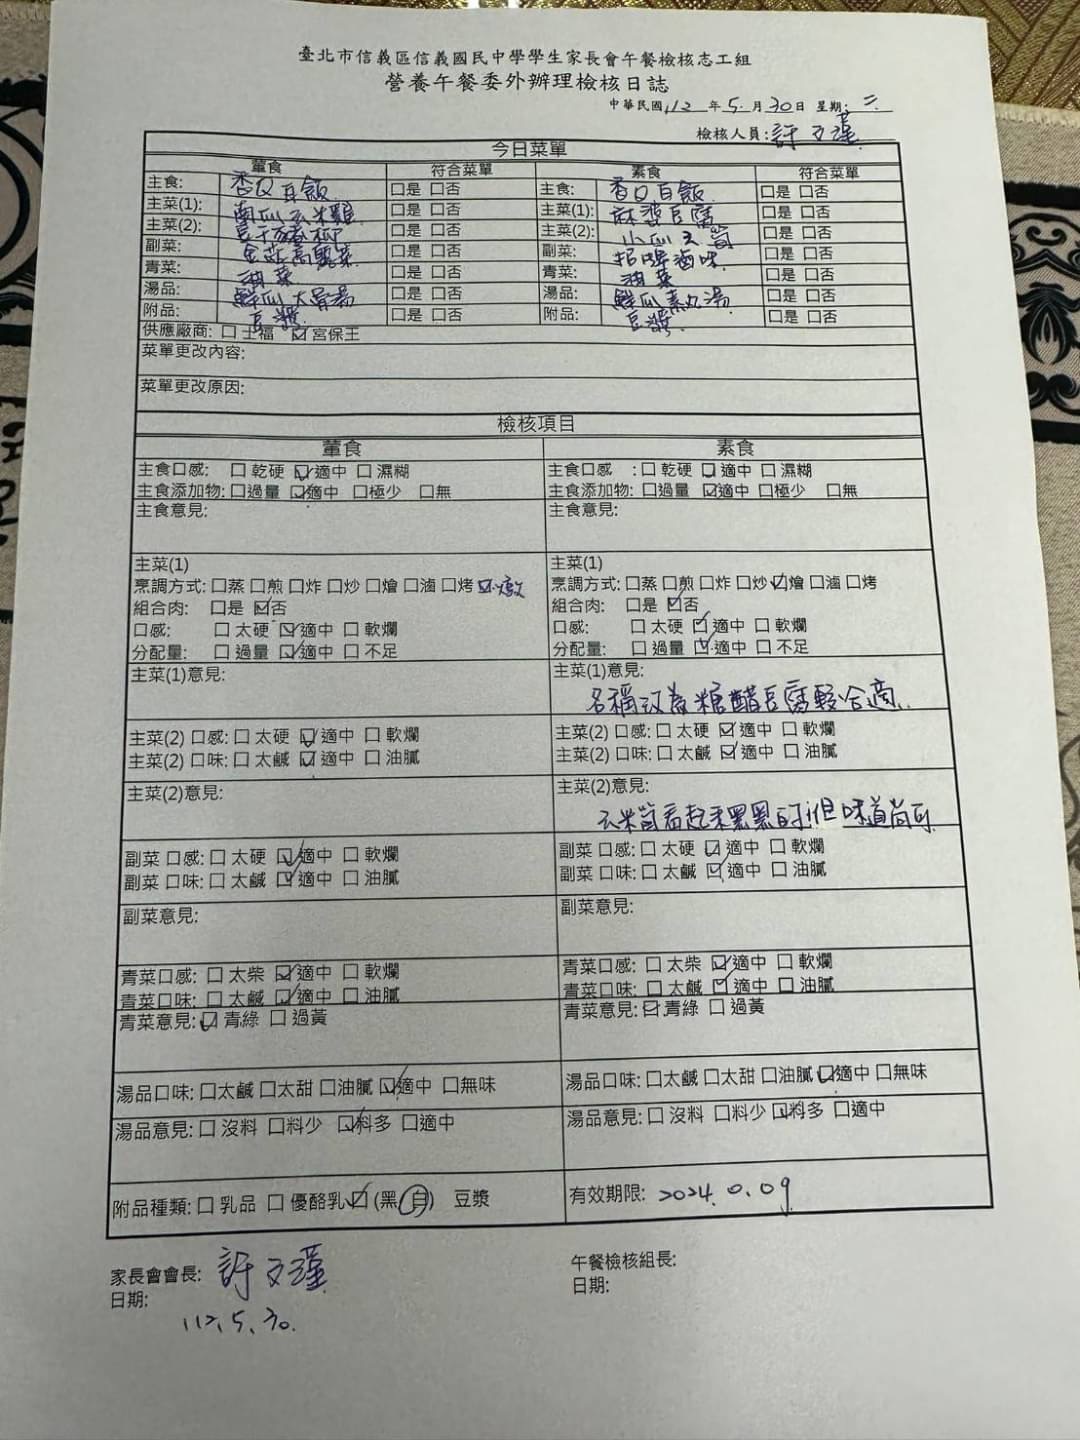 臺北市信義區信義國民中學學生家長會午餐檢核志工組
營養午餐委外辦理檢核日誌
中華民國 112 年 5 月 30 日 星期: 二
檢核人員: 許文瑾
今日菜單
葷食 符合菜單 素食 符合菜單
主食: 香Q白飯 口是 口否 主食: 香Q白飯 口是 口否
主菜(1): 南瓜玄米雞 口是 口否 主菜(1): 麻婆豆腐 口是 口否
主菜(2): 豆干 口是 口否 主菜(2): 小瓜玄 口是 口否
副菜: 金菇高麗菜 口是 口否 副菜: 招牌滷味 口是 口否
青菜: 油菜 口是 口否 青菜: 油菜 口是 口否
湯品: 鮮瓜大骨湯 口是 口否 湯品: 鮮瓜素丸湯 口是 口否
附品: 豆漿 口是 口否 附品: 豆漿 口是 口否
供應廠商: 口 士福 ☑ 宮保王
菜單更改內容:
菜單更改原因:
檢核項目
葷食 素食
主食口感: 口 乾硬 ☑ 適中 口 濕糊 主食口感 : 口 乾硬 ☑ 適中 口 濕糊
主食添加物: 口過量 ☑適中 口極少 口無 主食添加物: 口過量 ☑適中 口極少 口無
主食意見: 主食意見:
主菜(1) 主菜(1)
烹調方式: 口蒸 口煎 口炸 口炒 口燴 口滷 口烤 ☑燉 烹調方式: 口蒸 口煎 口炸 口炒 ☑燴 口滷 口烤
組合肉: 口是 ☑否 組合肉: 口是 ☑否
口感: 口 太硬 ☑ 適中 口 軟爛 口感: 口 太硬 ☑ 適中 口 軟爛
分配量: 口 過量 ☑ 適中 口 不足 分配量: 口 過量 ☑ 適中 口 不足
主菜(1)意見: 主菜(1)意見:
名稱改為糖醋豆腐較合適.
主菜(2) 口感: 口 太硬 ☑ 適中 口 軟爛 主菜(2) 口感: 口 太硬 ☑ 適中 口 軟爛
主菜(2) 口味: 口 太鹹 ☑ 適中 口 油膩 主菜(2) 口味: 口 太鹹 ☑ 適中 口 油膩
主菜(2)意見: 主菜(2)意見:
看起來黑黑的,但味道尚可.
副菜 口感: 口 太硬 ☑ 適中 口 軟爛 副菜 口感: 口 太硬 ☑ 適中 口 軟爛
副菜 口味: 口 太鹹 ☑ 適中 口 油膩 副菜 口味: 口 太鹹 ☑ 適中 口 油膩
副菜意見: 副菜意見:
青菜口感: 口 太柴 ☑ 適中 口 軟爛 青菜口感: 口 太柴 ☑ 適中 口 軟爛
青菜口味: 口 太鹹 ☑ 適中 口 油膩 青菜口味: 口 太鹹 ☑ 適中 口 油膩
青菜意見: ☑ 青綠 口 過黃 青菜意見: ☑ 青綠 口 過黃
湯品口味: 口太鹹 口太甜 口油膩 ☑適中 口無味 湯品口味: 口太鹹 口太甜 口油膩 ☑適中 口無味
湯品意見: 口 沒料 口料少 ☑料多 口適中 湯品意見: 口 沒料 口料少 ☑料多 口適中
附品種類: 口 乳品 口 優酪乳 ☑ (黑 白) 豆漿 有效期限: 2024. 0. 09
家長會會長: 許文瑾 午餐檢核組長:
日期: 日期:
112. 5. 30.